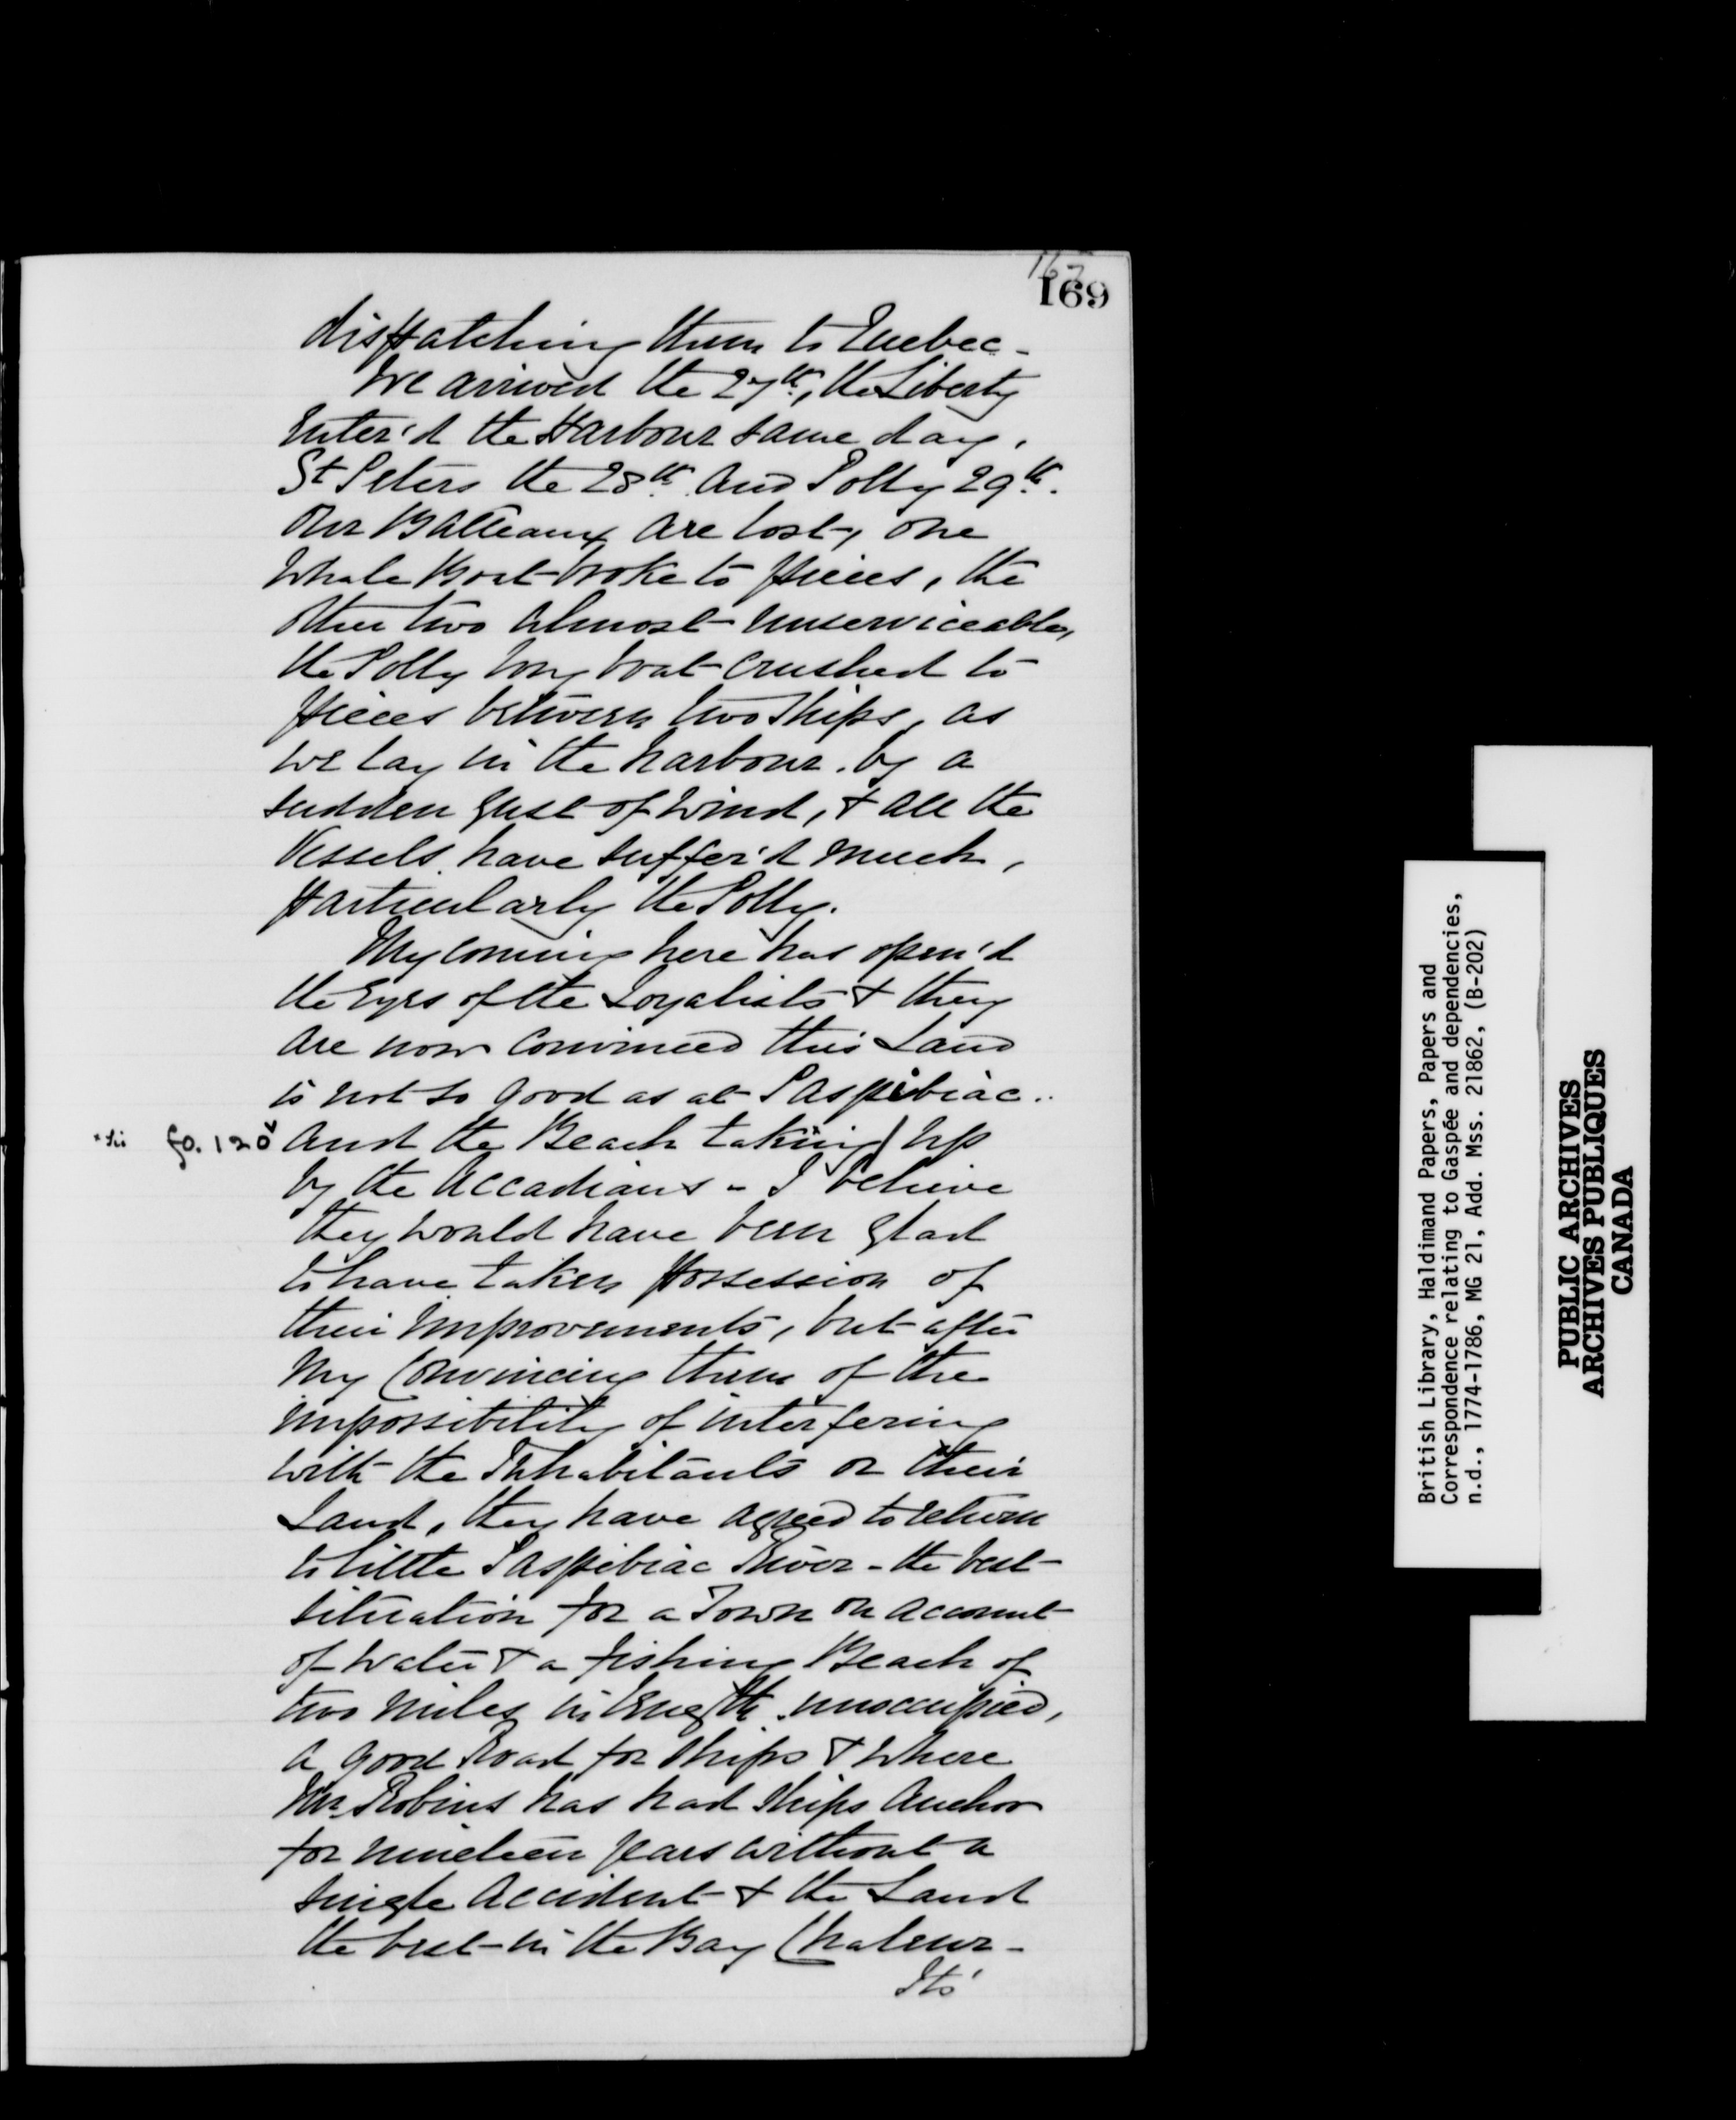 167
169
dispatching them to Quebec -
We arrived the 27th, the Liberty
Enter'd the Harbour same day,
St Peters the 28th. And Polly 29th.
Our Batteaux are lost, one
Whale Boat broke to pieces, the
other two almost unserviceable,
the Polly long boat crushed to
pieces between two Ships, as
we lay in the harbour, by a
sudden gust of wind, & all the
Vessels have suffer'd much,
particularly the Polly.
My coming here has open'd
the Eyes of the Loyalists & they
are now convinced this Land
is not so good as at Paspibiac..
*sic fo. 120v and the Beach taking* up
by the Accadians - I believe
they would have been glad
to have taken possession of
their Improvements, but after
my Convincing them of the
impossibility of interfering
with the Inhabitants or their
Land, they have agreed to return
to little Paspibiac River - the best
situation for a Town on account
of Water & a fishing Beach of
two miles in length unoccupied,
a good Road for Ships & where
Mr. Robins has had Ships Anchor
for nineteen years without a
single Accident & the Land
the best in the Bay Chaleur -
Its'
British Library, Haldimand Papers, Papers and
Correspondence relating to Gaspée and dependencies,
n.d., 1774-1786, MG 21, Add. Mss. 21862, (B-202)
PUBLIC ARCHIVES
ARCHIVES PUBLIQUES
CANADA